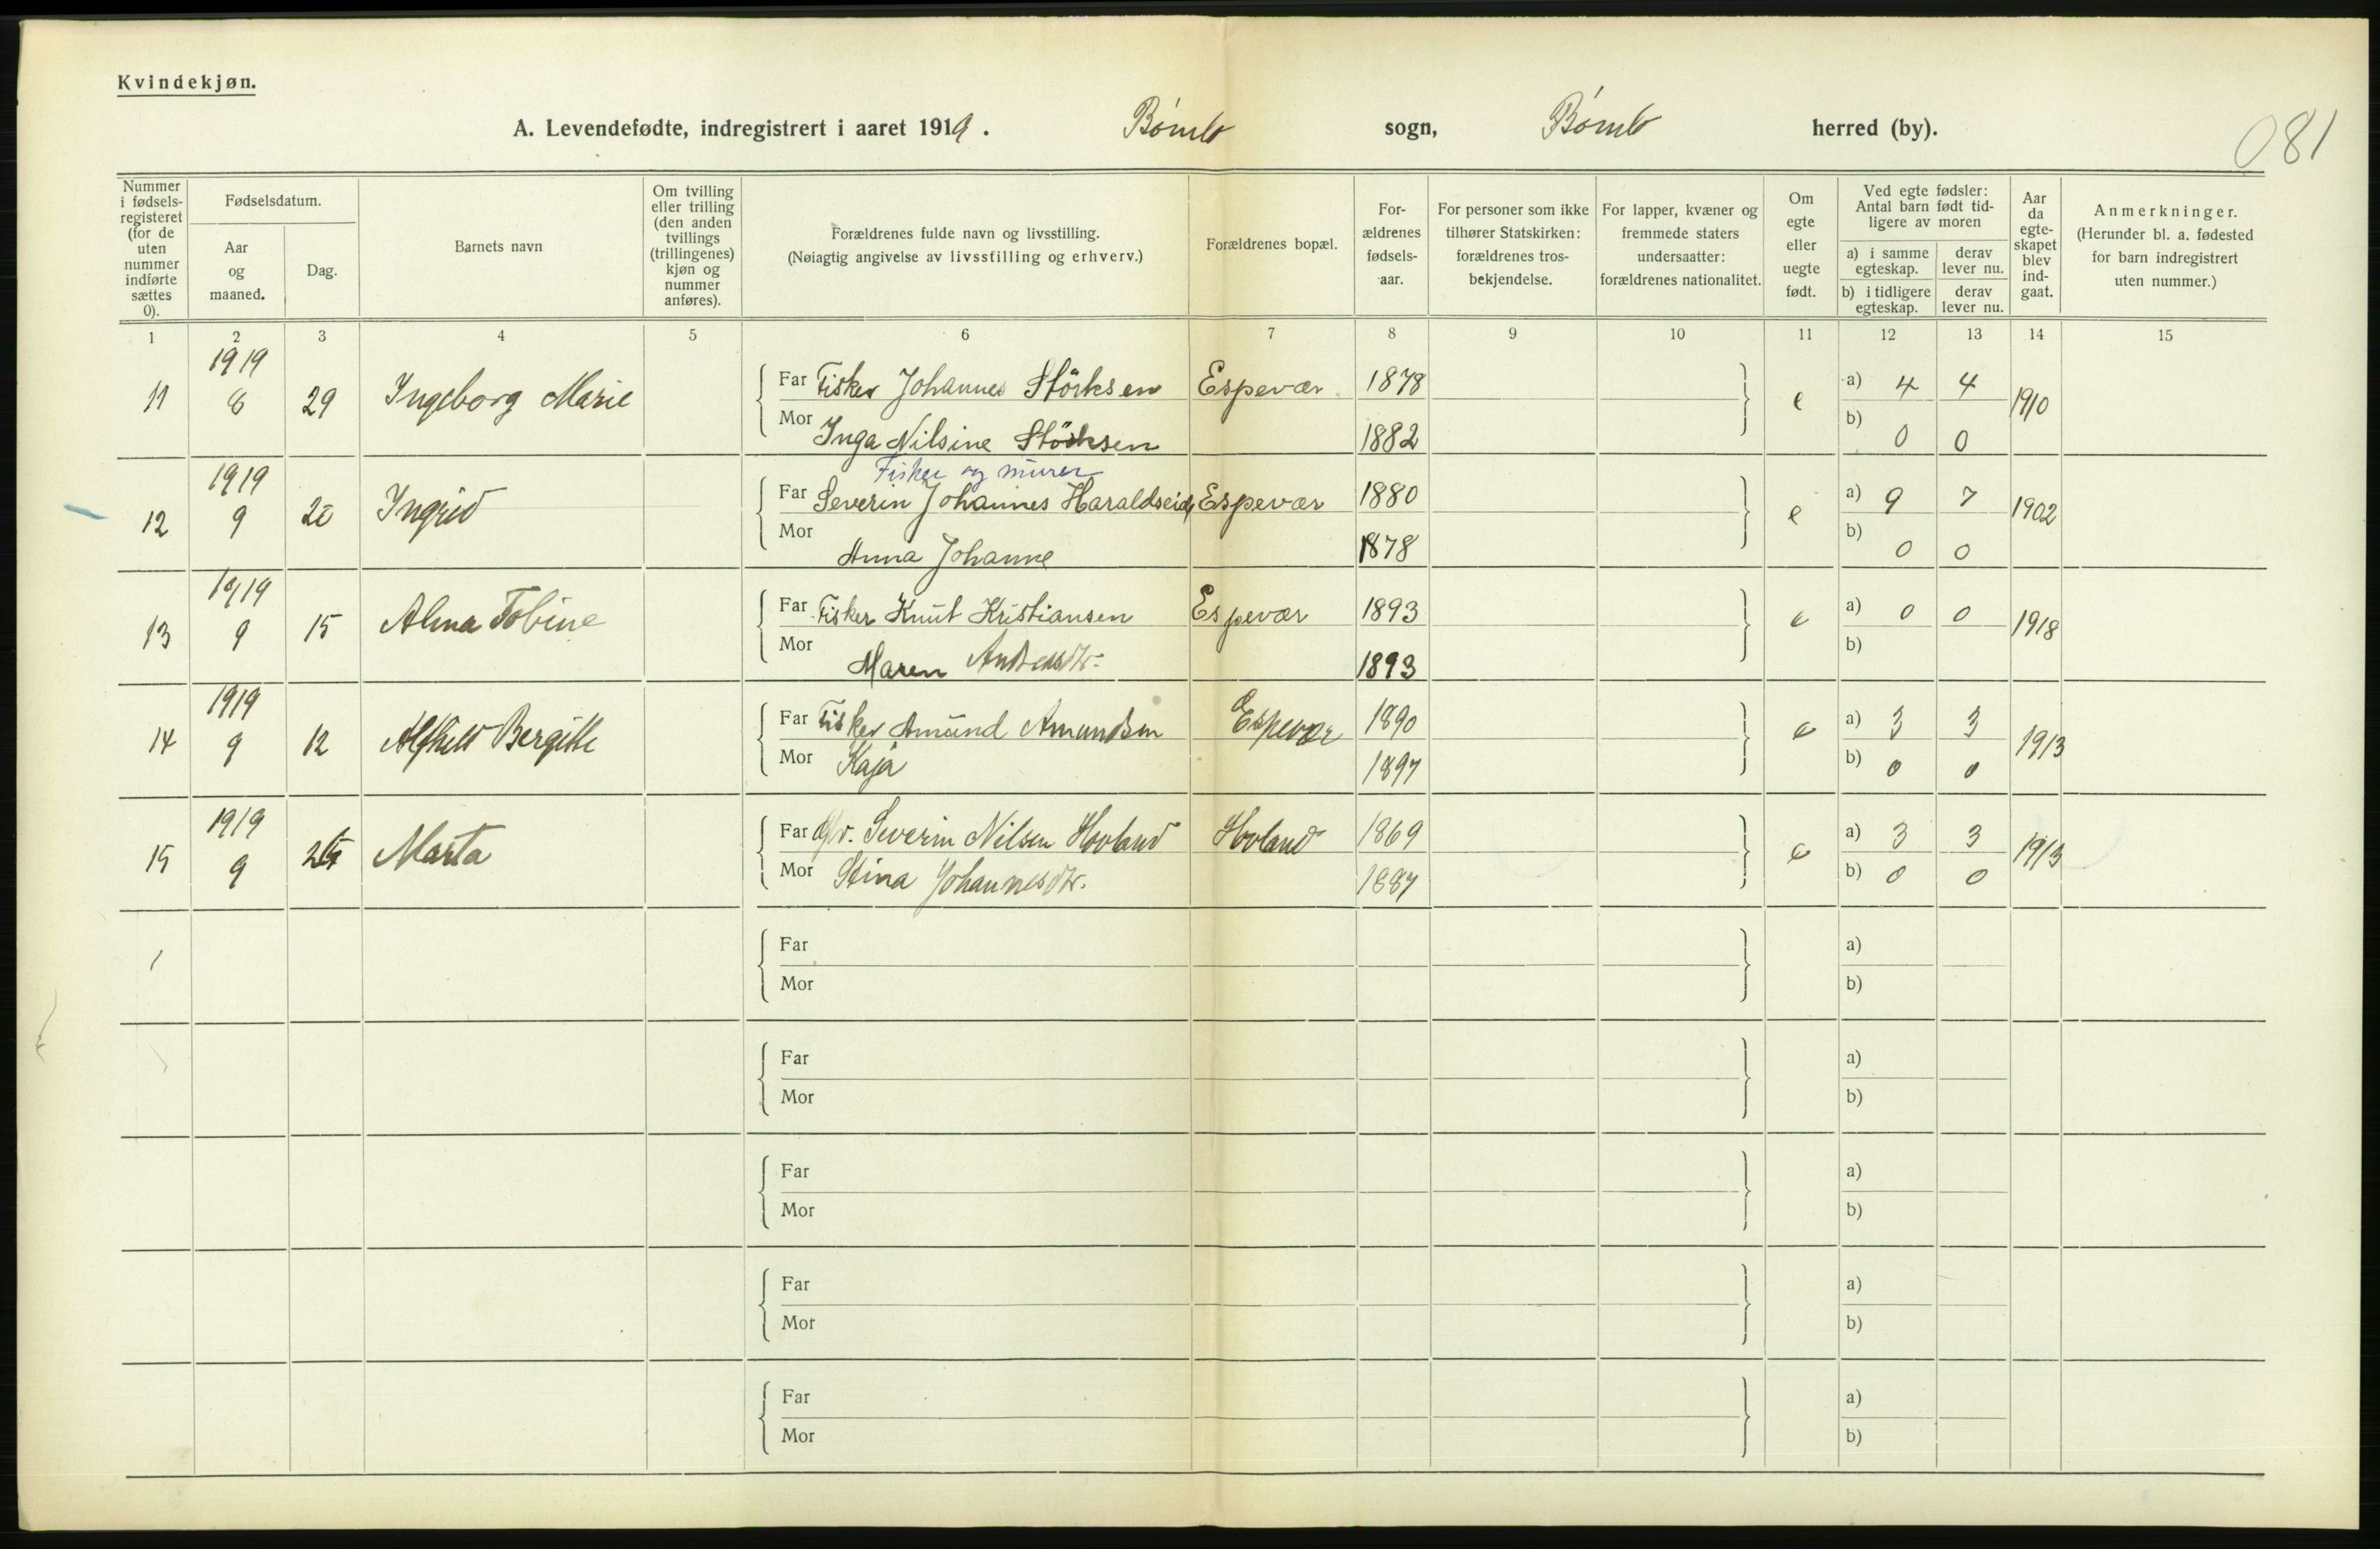 Kvindekjøn.
A. Levendefødte, indregistrert i aaret 1919. Bømlo sogn, Bømlo herred (by).
081
Nummer i fødsels-registeret (for de uten nummer indførte sættes 0).
Fødselsdatum.
Aar og maaned.
Dag.
Barnets navn
Om tvilling eller trilling (den anden tvillings (trillingenes) kjøn og nummer anføres).
Forældrenes fulde navn og livsstilling.
(Nøiagtig angivelse av livsstilling og erhverv.)
Forældrenes bopæl.
For-ældrenes fødsels-aar.
For personer som ikke tilhører Statskirken: forældrenes tros-bekjendelse.
For lapper, kvæner og fremmede staters undersaatter: forældrenes nationalitet.
Om egte eller uegte født.
Ved egte fødsler: Antal barn født tid-ligere av moren
a) i samme egteskap.
derav lever nu.
b) i tidligere egteskap.
derav lever nu.
Aar da egte-skapet blev ind-gaat.
Anmerkninger.
(Herunder bl. a. fødested for barn indregistrert uten nummer.)
1 2 3 4 5 6 7 8 9 10 11 12 13 14 15
1919
11 8 29 Ingeborg Marie Far Fisker Johannes Störksen Espevær 1878 e a) 4 4 1910
Mor Inga Nilsine Störksen 1882 b) 0 0
Fisker og murer
1919
12 9 20 Ingrid Far Severin Johannes Haraldseid Espevær 1880 e a) 9 7 1902
Mor Anna Johanne 1878 b) 0 0
1919
13 9 15 Alma Tobine Far Fisker Knut Kristiansen Espevær 1893 e a) 0 0 1918
Mor Maren Andersdtr. 1893 b)
1919
14 9 12 Alfhild Bergitte Far Fisker Amund Amundsen Espevær 1890 e a) 3 3 1913
Mor Kaja 1897 b) 0 0
1919
15 9 Marta Far Severin Nilsen Hovland Hovland 1869 e a) 3 3 1913
Mor Stina Johannesdtr. 1887 b) 0 0
Far a)
Mor b)
Far a)
Mor b)
Far a)
Mor b)
Far a)
Mor b)
Far a)
Mor b)